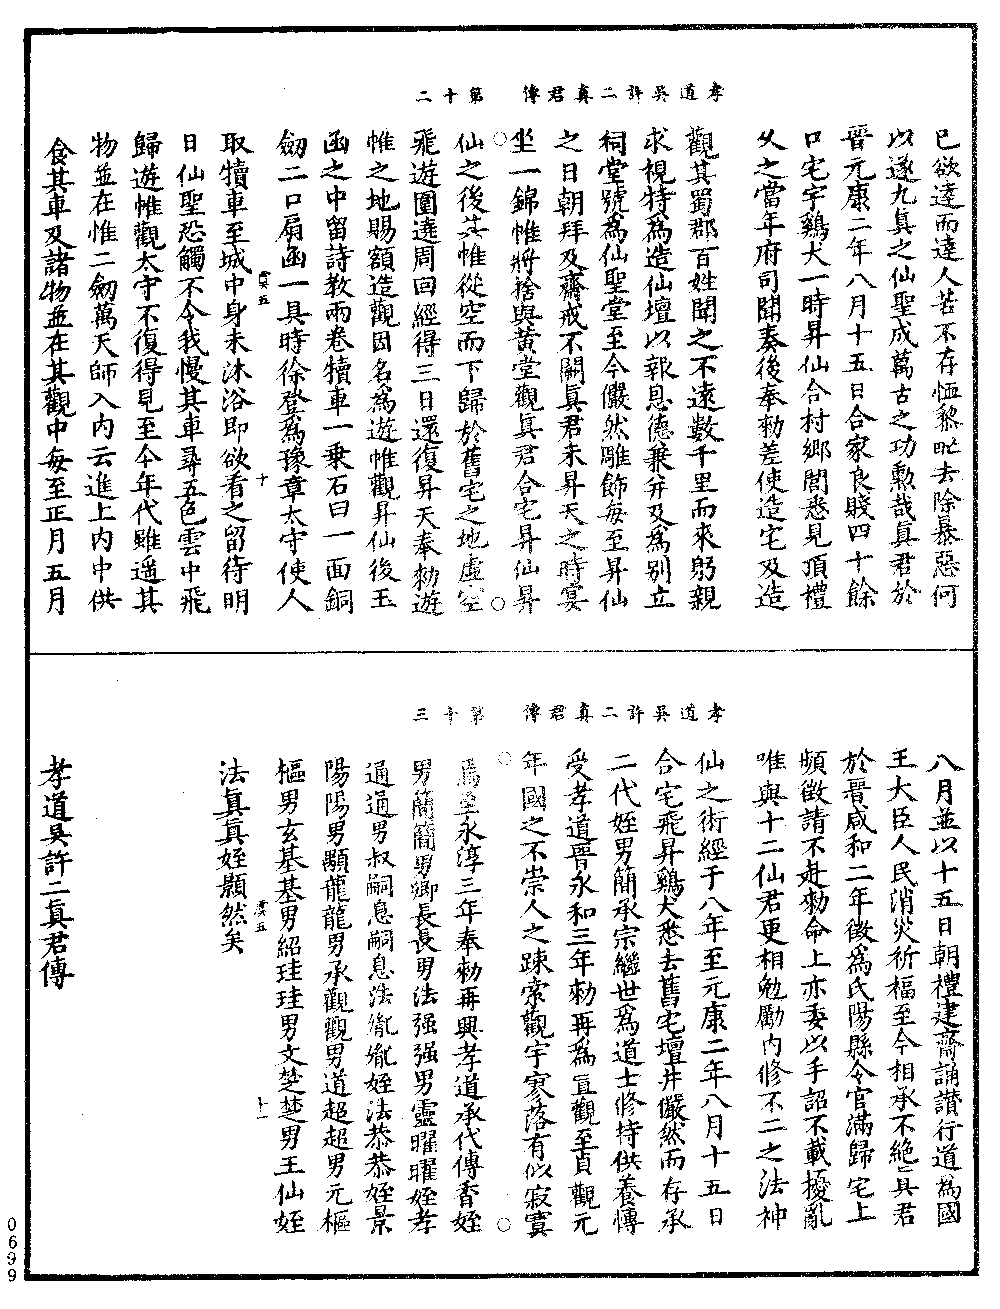 孝道吳許二真君傳　第十二
已欲達而達人苦不存恤黎甿去除暴惡何
以遂九真之仙聖成萬古之功勳哉真君於
晉元康二年八月十五日合家良賤四十餘
口宅宇鷄犬一時昇仙合村鄉閭悉見頂禮
乆之當年府司聞奏後奉勑差使造宅及造
觀其蜀郡百姓聞之不遠數千里而來躬親
求視特為造仙壇以報恩德兼并及為別立
祠堂號為仙聖堂至今儼然雕飾每至昇仙
之日朝拜及齋戒不闕真君未昇天之時宴
坐一錦帷將捨與黃堂觀真君合宅昇仙昇
仙之後其帷從空而下歸於舊宅之地虛空
飛遊圍遶周回經得三日還復昇天奉勑遊
帷之地賜額造觀因名為遊帷觀昇仙後玉
函之中留詩教兩卷犢車一乗石臼一面銅
劒二口扃函一具時徐登為豫章太守使人
虞五　十
取犢車至城中身未沐浴即欲看之留待明
日仙聖恐觸不令我慢其車尋五色雲中飛
歸遊帷觀太守不復得見至今年代雖遥其
物並在惟二劒萬天師入內云進上內中供
食其車及諸物並在其觀中每至正月五月
孝道吳許二真君傳　第十三
八月並以十五日朝禮建齋誦讚行道為國
王大臣人民消災祈福至今相承不絕真君
於晉咸和二年徵為氏陽縣令官滿歸宅上
頻徵請不赴勑命上亦委以手詔不載擾亂
唯與十二仙君更相勉勵內修不二之法神
仙之術經于八年至元康二年八月十五日
合宅飛昇鷄犬悉去舊宅壇井儼然而存承
二代姪男簡承宗繼世為道士修持供養傳
受孝道晉永和三年勑再為置觀至貞觀元
年國之不崇人之踈索觀宇寥落有似寂寞
焉至永淳三年奉勑再興孝道承代傳香姪
男簡簡男卿長長男法强强男靈曜曜姪孝
通通男叔嗣息嗣息法胤胤姪法恭恭姪景
陽陽男顯龍龍男承觀觀男道超超男元樞
樞男玄基基男紹珪珪男文楚楚男王仙姪
虞五　十一
法真真姪顥然矣
孝道吳許二真君傳
0699